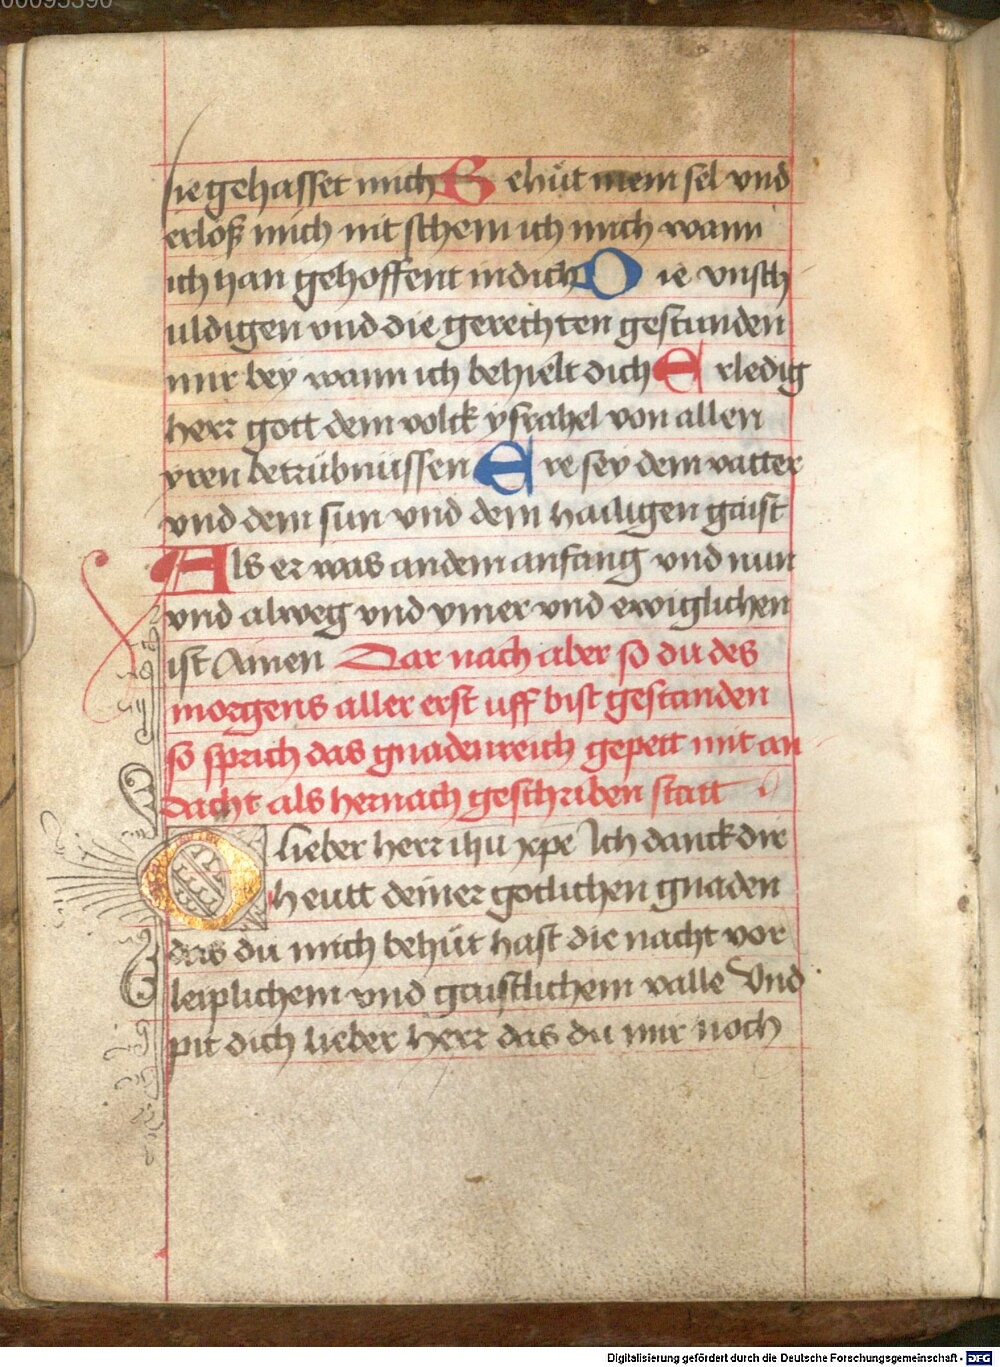 00095390
sie gehasset mich Behüt mein sel vnd
erlöß mich nit schem ich mich wann
ich han gehoffent in dich Die vnsch
uldigen vnd die gerechten gestunden
mir bey wann ich behielt dich Erledig
herr gott dem volck ysrahel von allen
yren betrübnüssen Ere sey dem vatter
vnd dem sun vnd dem hailigen gaist
Als er was an dem anfang vnd nun
vnd alweg vnd ymer vnd ewiglichen
ist Amen Dar nach aber so du des
morgens aller erst uff bist gestanden
so sprich das gnadenreich gepett mit an
dacht als hernach geschriben statt
O lieber herr ihu xpe Ich danck dir
heutt deiner gotlichen gnaden
das du mich behüt hast die nacht vor
leiplichem vnd gaistlichem valle Vnd
pit dich lieber herr das du mir noch
Digitalisierung gefördert durch die Deutsche Forschungsgemeinschaft - DFG